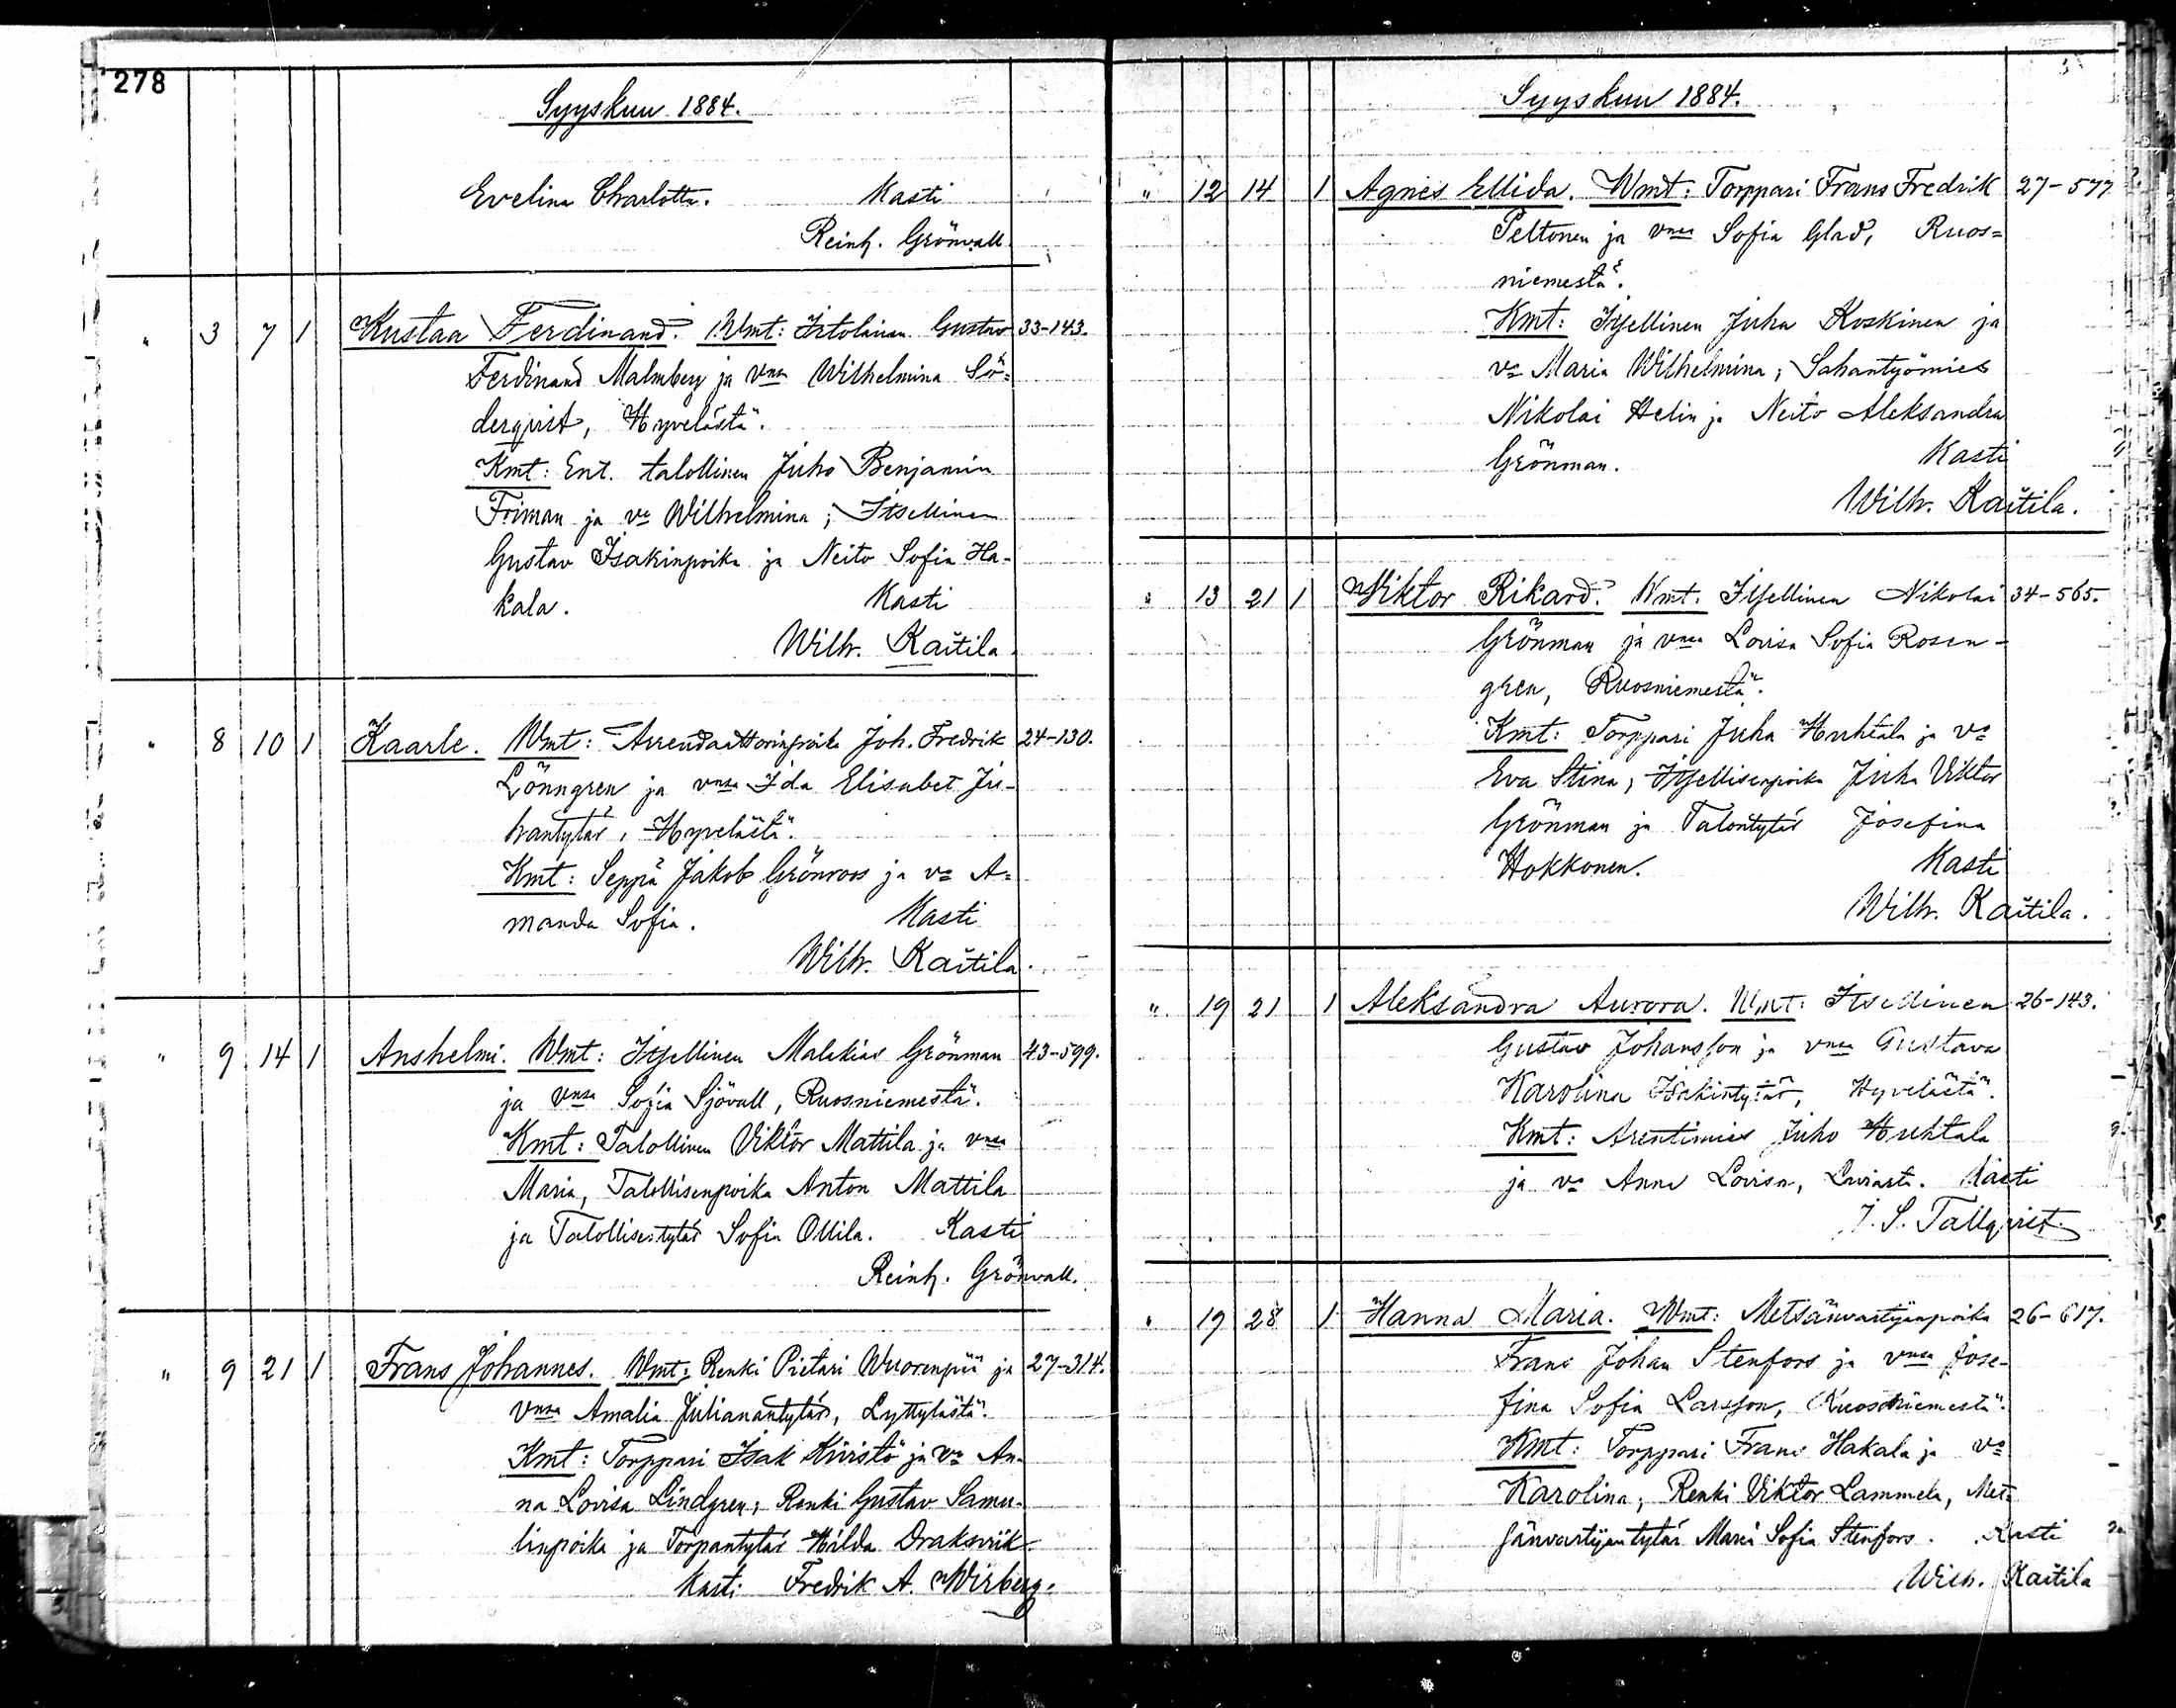 278
Syyskuu 1884.
Evelina Charlotta. Kasti
Reinh. Grönvall
" 3 7 1 Kustaa Ferdinand. Wmt: Irtolainen Gustav 33-143.
Ferdinand Malmberg ja vnsa Wilhelmina Sö-
derqvist, Hyvelästä.
Kmt: Ent. talollinen Juho Benjamin
Friman ja va Wilhelmina; Itsellinen
Gustav Isakinpoika ja Neito Sofia Ha-
kala. Kasti
Wilh. Kaitila.
" 8 10 1 Kaarle. Wmt: Arrendaattorinpoika Joh. Fredrik 24-130.
Lönngren ja vnsa Ida Elisabet Ju-
hantytär, Hyvelästä.
Kmt: Seppä Jakob Grönroos ja va A-
manda Sofia. Kasti
Wilh. Kaitila.
" 9 14 1 Anshelmi. Wmt: Itsellinen Malakias Grönman 43-599.
ja vnsa Sofia Sjövall, Ruosniemestä.
Kmt: Talollinen Viktor Mattila ja vnsa
Maria, Talollisenpoika Anton Mattila
ja Talollisentytär Sofia Ollila. Kasti
Reinh. Grönvall.
" 9 21 1 Frans Johannes. Wmt: Renki Pietari Wuorenpää ja 27-314.
vnsa Amalia Julianantytär, Lyttylästä.
Kmt: Torppari Isak Kiiristö ja va An-
na Lovisa Lindgren; Renki Gustav Samu-
linpoika ja Torpantytär Hilda Draksvik
Kasti Fredrik A. Wirberg.
Syyskuu 1884.
" 12 14 1 Agnes Ellida. Wmt: Torppari Frans Fredrik 27-577
Peltonen ja vnsa Sofia Glad, Ruos=
niemestä.
Kmt: Itsellinen Juha Koskinen ja
va Maria Wilhelmina; Sahantyömies
Nikolai Helin ja Neito Aleksandra
Grönman. Kasti
Wilh. Kaitila.
" 13 21 1 Viktor Rikard. Wmt. Itsellinen Nikolai 34-565.
Grönman ja vnsa Lovisa Sofia Rosen-
gren, Ruosniemestä.
Kmt: Torppari Juha Huhtala ja va
Eva Stina; Itsellisenpoika Juha Viktor
Grönman ja Talontytär Josefina
Hokkonen. Kasti
Wilh. Kaitila.
" 19 21 1 Aleksandra Aurora. Wmt: Itsellinen 26-143.
Gustav Johansson ja vnsa Gustava
Karolina Isakintytär, Hyvelästä.
Kmt: Arentimies Juho Huhtala
ja va Anna Lovisa, Laviasta. Kasti
J. S. Tallqvist.
" 19 28 1 Hanna Maria. Wmt: Metsänvartijanpoika 26-617.
Frans Johan Stenfors ja vnsa Jose-
fina Sofia Larsson, Ruosniemestä.
Kmt: Torppari Frans Hakala ja va
Karolina; Renki Viktor Lammela, Met-
sänvartijantytär Maria Sofia Stenfors. Kasti
Wilh. Kaitila